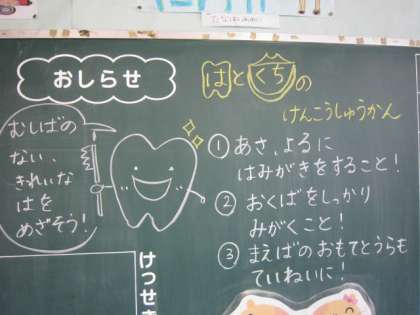 おしらせ
むしばの
ない、
きれいな
はを
めざそう！
はとくちの
けんこうしゅうかん
① あさ、よるに
はみがきをすること！
② おくばをしっかり
みがくこと！
③ まえばのおもてとうらも
ていねいに！
けつせき